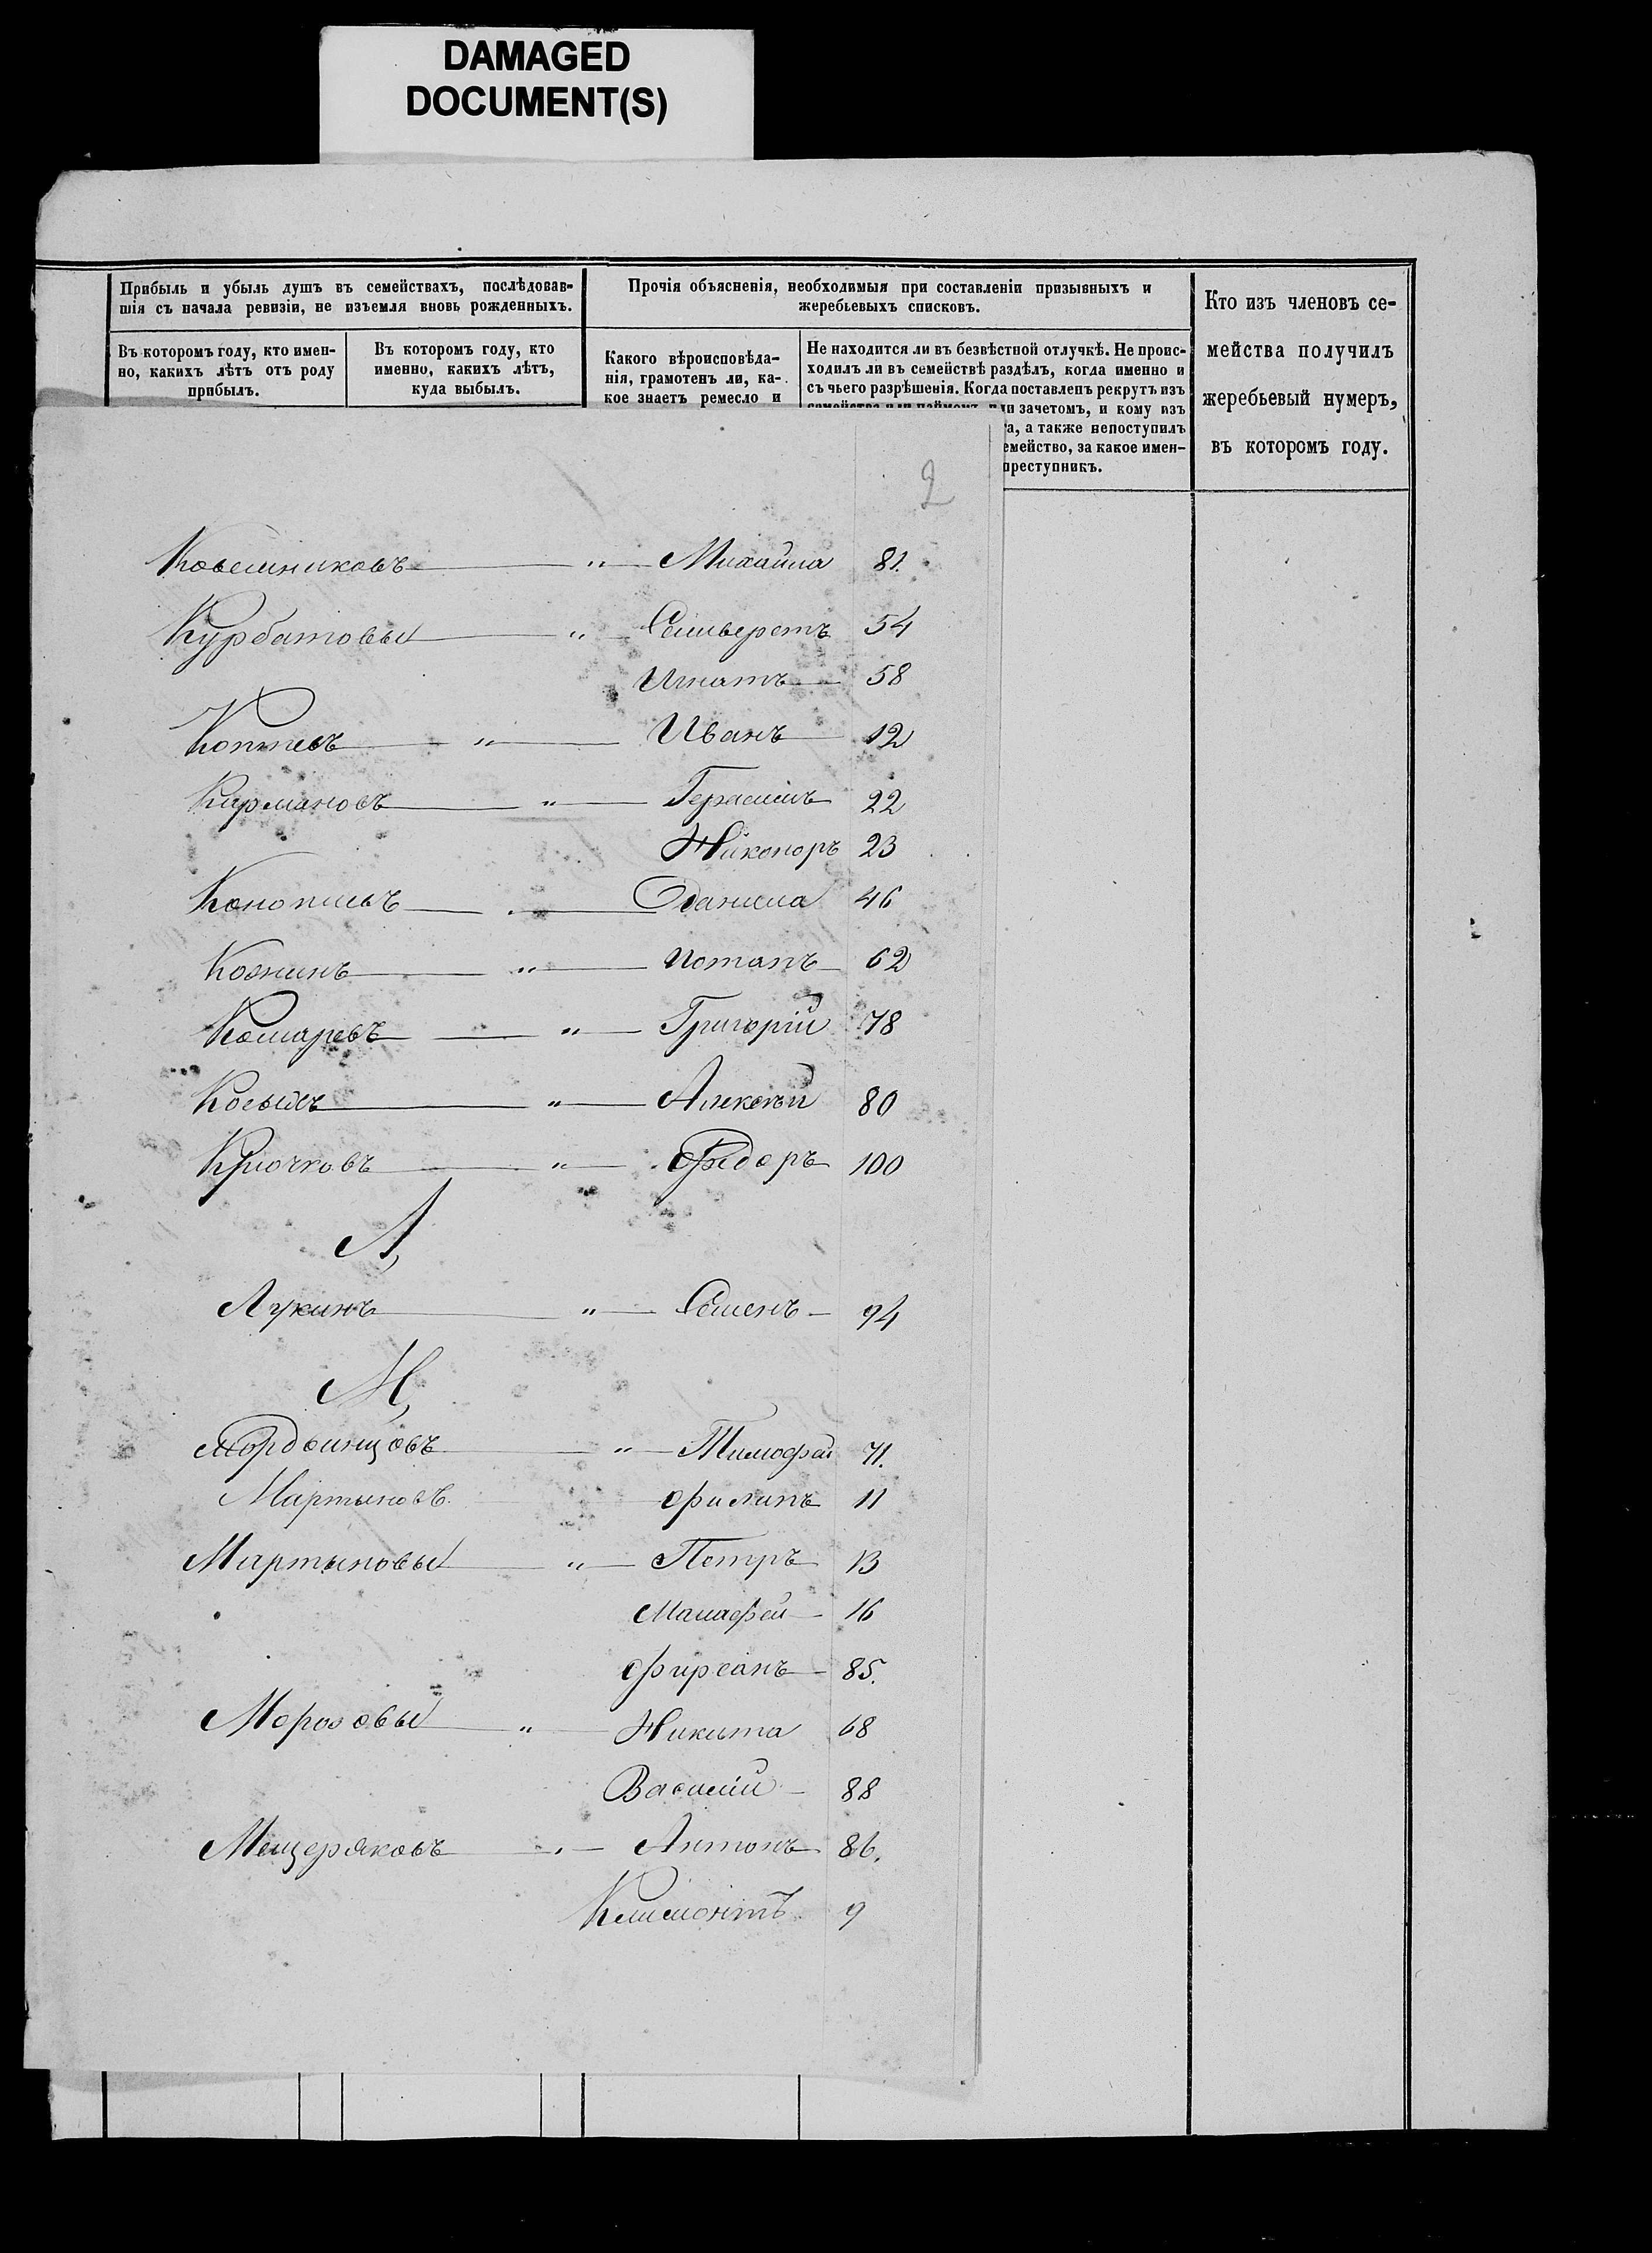 DAMAGED
DOCUMENT(S)
Прибыль и убыль душъ въ семействахъ, послѣдовав-
шія съ начала ревизіи, не изъемля вновь рожденныхъ.
Въ которомъ году, кто имен-
но, какихъ лѣтъ отъ роду
прибылъ.
Въ которомъ году, кто
именно, какихъ лѣтъ,
куда выбылъ.
Прочія объясненія, необходимыя при составленіи призывныхъ и
жеребьевыхъ списковъ.
Какого вѣроисповѣда-
нія, грамотенъ ли, ка-
кое знаетъ ремесло и
Не находится ли въ безвѣстной отлучкѣ. Не проис-
ходилъ ли въ семействѣ раздѣлъ, когда именно и
съ чьего разрѣшенія. Когда поставленъ рекрутъ изъ
семейства или наймомъ или зачетомъ, и кому изъ
а, а также непоступилъ
емейство, за какое имен-
преступникъ.
Кто изъ членовъ се-
мейства получилъ
жеребьевый нумеръ,
въ которомъ году.
2
Ковешниковъ " Михайла 81.
Курбатовы " Селиверстъ 54
Игнатъ 58
" Иванъ 12
Кирмановъ " Герасимъ 22
Никоноръ 23
Данила 46
Кожинъ " Потапъ 62
Комаревъ " Григорій 78
Косыхъ " Алексѣй 80
Крючковъ " Федоръ 100
Л,
Лукинъ " Семенъ 94
М,
Мордвинцовъ " Тимофей 71.
Мартыновъ Филипъ 11
Мартыновы " Петръ 13
16
Фирсанъ 85.
Морозовы " Никита 68
Василій 88
Мещеряковъ " Антонъ 86.
Климонтъ 9